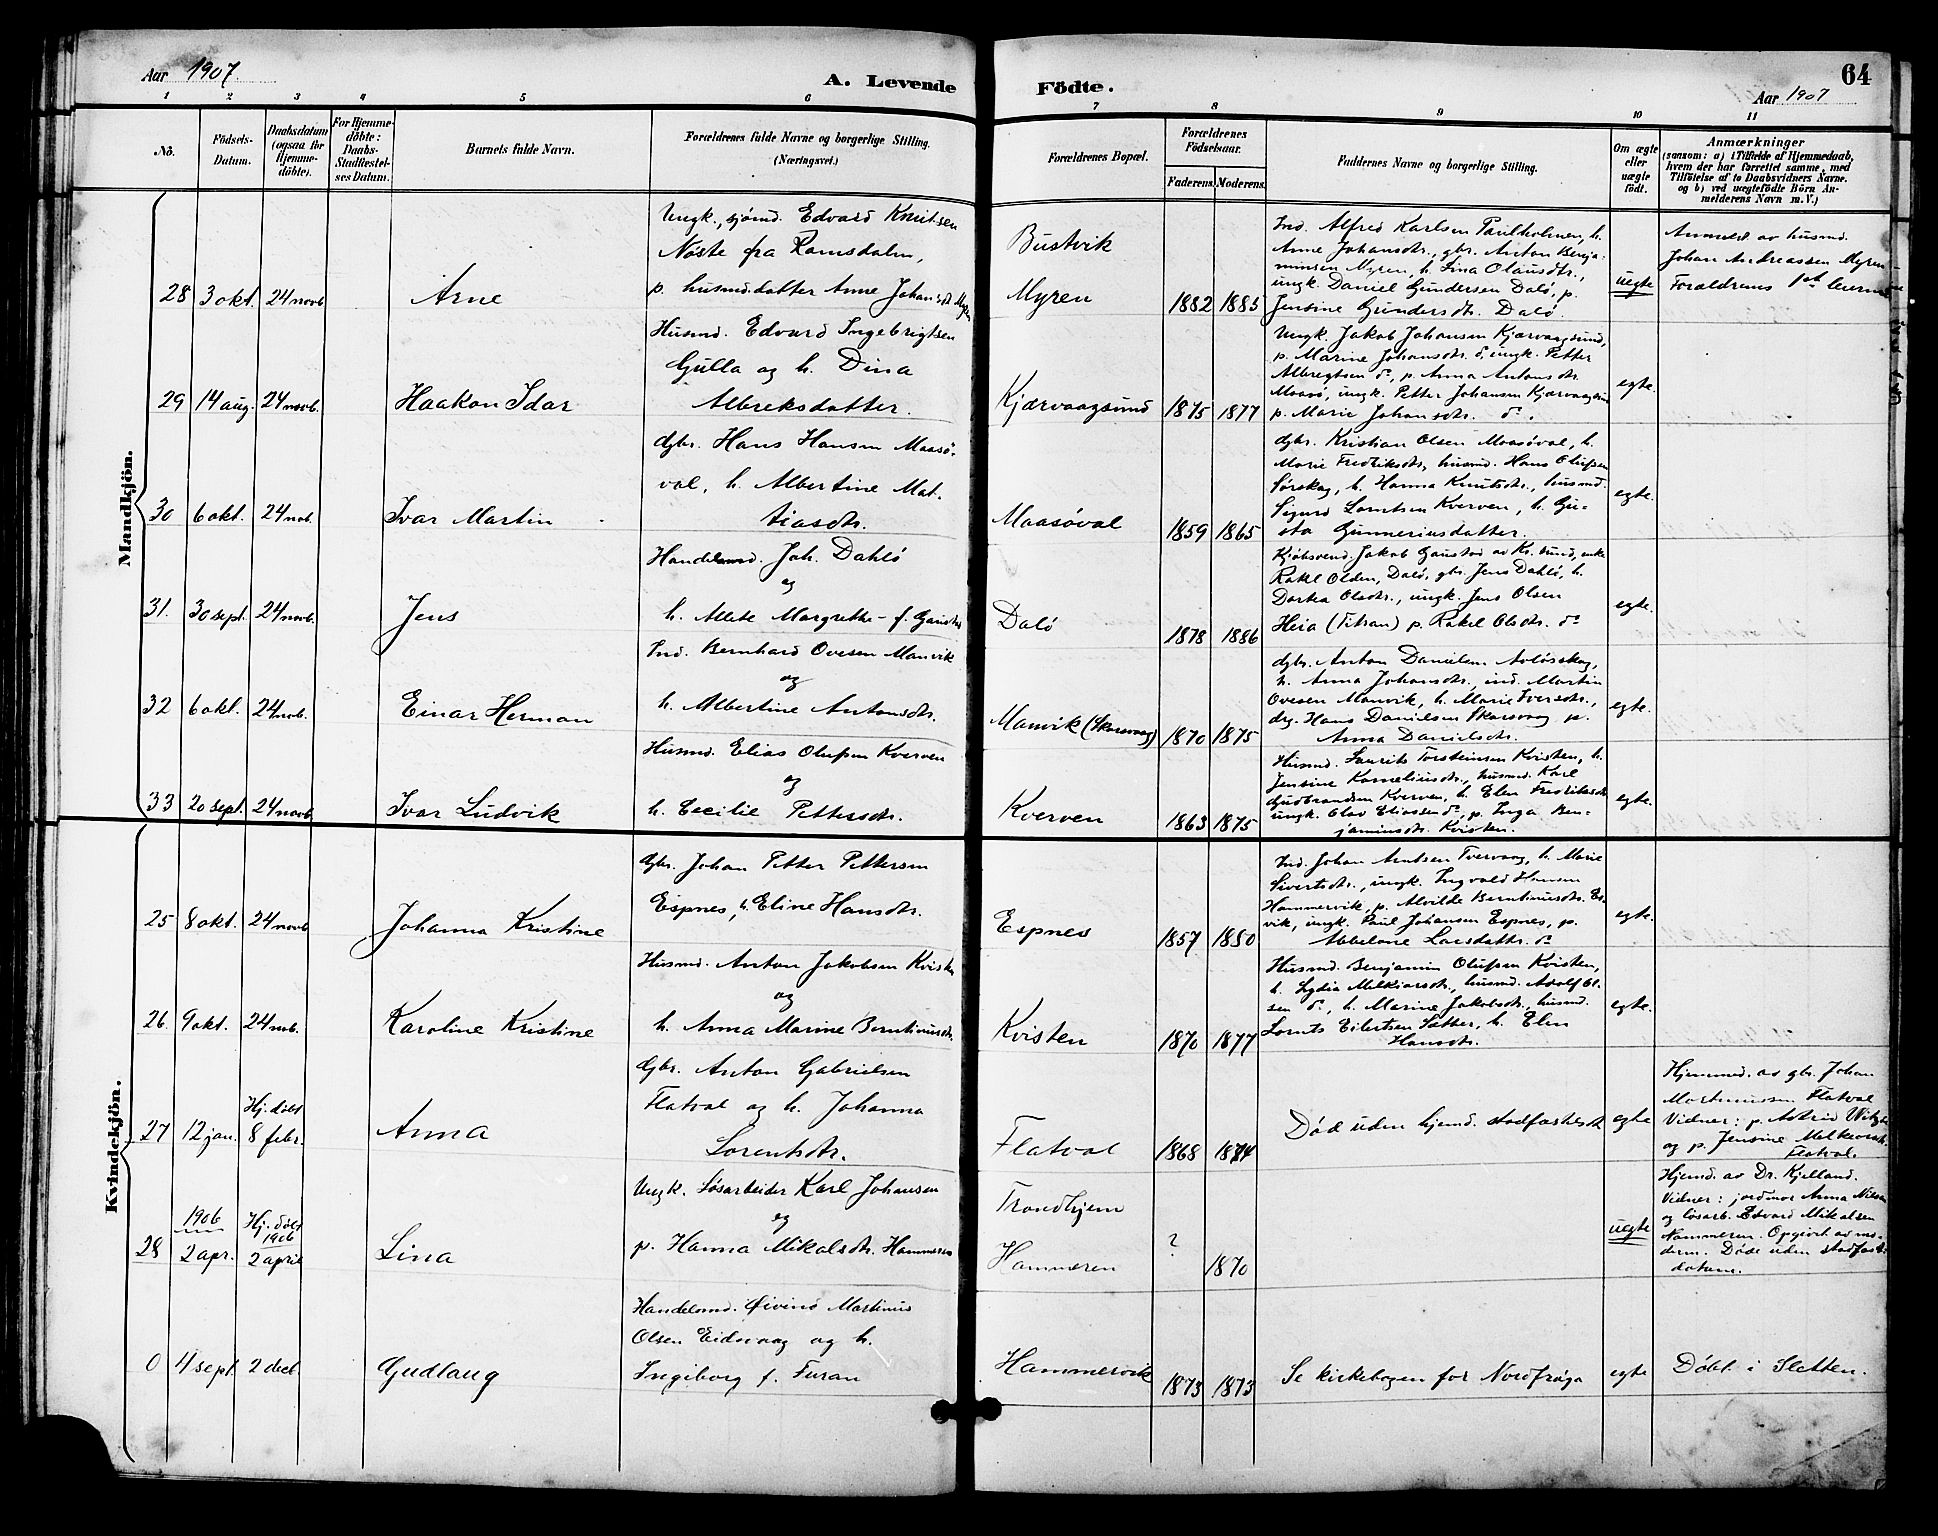 Aar 1907.
A. Levende
1 2 3 4 5 6
Nö.
Födsels-
Datum.
Daabsdatum
(ogsaa för
Hjemme-
döbte).
For Hjemme-
döbte:
Daabs-
Stadfæstel-
ses Datum.
Barnets fulde Navn.
Forældrenes fulde Navne og borgerlige Stilling.
(Næringsvei.)
Födte.
64
Aar 1907
7 8 9 10 11
Forældrenes Bopæl.
Forældrenes
Födselsaar.
Faderens. Moderens.
Faddernes Navne og borgerlige Stilling.
Om ægte
eller
uægte
födt.
Anmærkninger
(saasom: a) i Tilfælde af Hjemmedaab,
hvem der har forrettet samme, med
Tilföielse af to Daabsvidners Navne.
og b) ved uægtefödte Börn An-
melderens Navn m. V.)
Mandkjön.
28 3 okt. 24 novb. Arne
Ungk., sjømd. Edvard Knutsen
Nøste fra Romsdalen,
p. husmd.datter Anne Johansdt. Myren
Bustvik
Myren
1882 1885
Ind. Alfred Karlsen Paulholmen, h.
Anne Johansdtr., gbr. Anton Benja-
minsen Myren, h. Lina Olausdtr.,
ungk. Daniel Gundersen Dalø, p.
Jensine Gundersdtr. Dalø.
uegte
Anmeldt av husmd.
Johan Andreassen Myren
Forældrenes 1st leiermaal
29 14 aug. 24 novb. Haakon Idar
Husmd. Edvard Ingebrigtsen
Gulla og h. Dina
Albreksdatter.
Kjærvaagsund
1875 1877
Ungk. Jakob Johansen Kjærvaagsund,
p. Marine Johansdtr. do, ungk. Petter
Albregtsen do, p. Anna Antonsdtr.
Maasø, ungk. Petter Johansen Kjærvaagsund
p. Marie Johansdtr. do.
egte.
30 6 okt. 24 nob. Ivar Martin
gbr. Hans Hansen Maasø-
val, h. Albertine Mat-
tiasdtr.
Maasøval
1859 1865
gbr. Kristian Olsen Maasøval, h.
Marie Fredriksdtr., husmd. Hans Olufsen
Sørskag, h. Hanna Knutsdtr., husmd.
Sigurd Lorntsen Kverven, h. Gu-
sta Gunneriusdatter.
egte.
31. 30 sept. 24 novb. Jens
Handelsmd. Joh. Dahlø
og
h. Mete Margrethe f. Gaustad
Dalø
1878 1886
Kjøbsvend. Jakob Gaustad av Kr.sund, enke
Rakel Olden, Dalø, gbr. Jens Dahlø, h.
Dortea Olsdtr., ungk. Jens Olsen
Heia (Titran) p. Rakel Olsdtr. do
egte.
32 6 okt. 24 nob. Einar Herman
Ind. Bernhard Ovesen Manvik
og
h. Albertine Antonsdtr.
Manvik (Skarsvaag)
1870 1875
gbr. Anton Danielsen Avløsskag,
h. Anna Johansdtr., ind. Martin
Ovesen Manvik, h. Marie Iversdtr.,
drg. Hans Danielsen Skarsvaag p.
Anna Danielsdtr.
egte.
33 20 sept. 24 novb. Ivar Ludvik
Husmd. Elias Olufsen Kverven
og
h. Cecilie Pettersdtr.
Kverven
1863 1875
Husmd. Laurits Torsteinsen Kvisten, h.
Jensine Korneliusdtr., husmd. Karl
Gudbrandsen Kverven, h. Elen Fredriksdtr
ungk. Olav Eliassen do, p. Inga Ben-
jaminsdtr. Kvisten.
egte.
Kvindekjön.
25 8 okt. 24 novb Johanna Kristine
Gbr. Johan Petter Pettersen
Espnes, h. Eline Hansdtr.
Espnes
1857 1880
Ind. Johan Arntsen Tvervaag, h. Marie
Sivertsdtr., ungk. Ingvald Hansen
Hammervik, p. Alvilde Berntinusdtr. Es-
vik, ungk. Paul Johansen Espnes, p.
Abbelone Larsdattr. do
egte.
26. 9 okt. 24 nob. Karoline Kristine
Husmd. Anton Jakobsen Kvisten
og
h. Anna Marine Berntinusdtr.
Kvisten
1870 1877
Husmd. Benjamin Olufsen Kvisten,
h. Lydia Melkiorsdtr., husmd. Adolf Ol-
sen do, h. Marine Jakobsdtr., husmd.
Lornts Eilertsen Sætter, h. Elen
Hansdtr.
egte.
27 12 jan. Hj. døbt
8 febr. Anna
Gbr. Anton Gabrielsen
Flatval og h. Johanna
Lorentsdtr.
Flatval
1868 1874
Død uden hjemd. stadfæstelse
egte
Hjemmed. av gbr. Johan
Martinussen Flatval
Vidner: p. Astrid
og p. Jensine Melkiorsdtr.
Flatval.
28 1906
2 apr. Hj. døbt
1906
2 april Lina
Ungk. løsarbeider Karl Johansen
og
p. Hanna Mikalsdtr. Hammeren
Trondhjem
Hammeren
? 1870
uegte
Hjemd. av Dr. Kjelland.
Vidner: jordmor Anna Nilsen
og løsarb. Edvard Mikalsen
Hammeren. Opgivet av mo-
deren. Døde uden stadfæst.
datum.
0 4 sept. 2 decb. Gudlaug
Handelsmd. Øivind Martinus
Olsen Eidsvaag og h.
Ingeborg f. Furan
Hammervik
1873 1873
Se kirkebogen for Nordfrøya
egte
Døbt i Sletten.